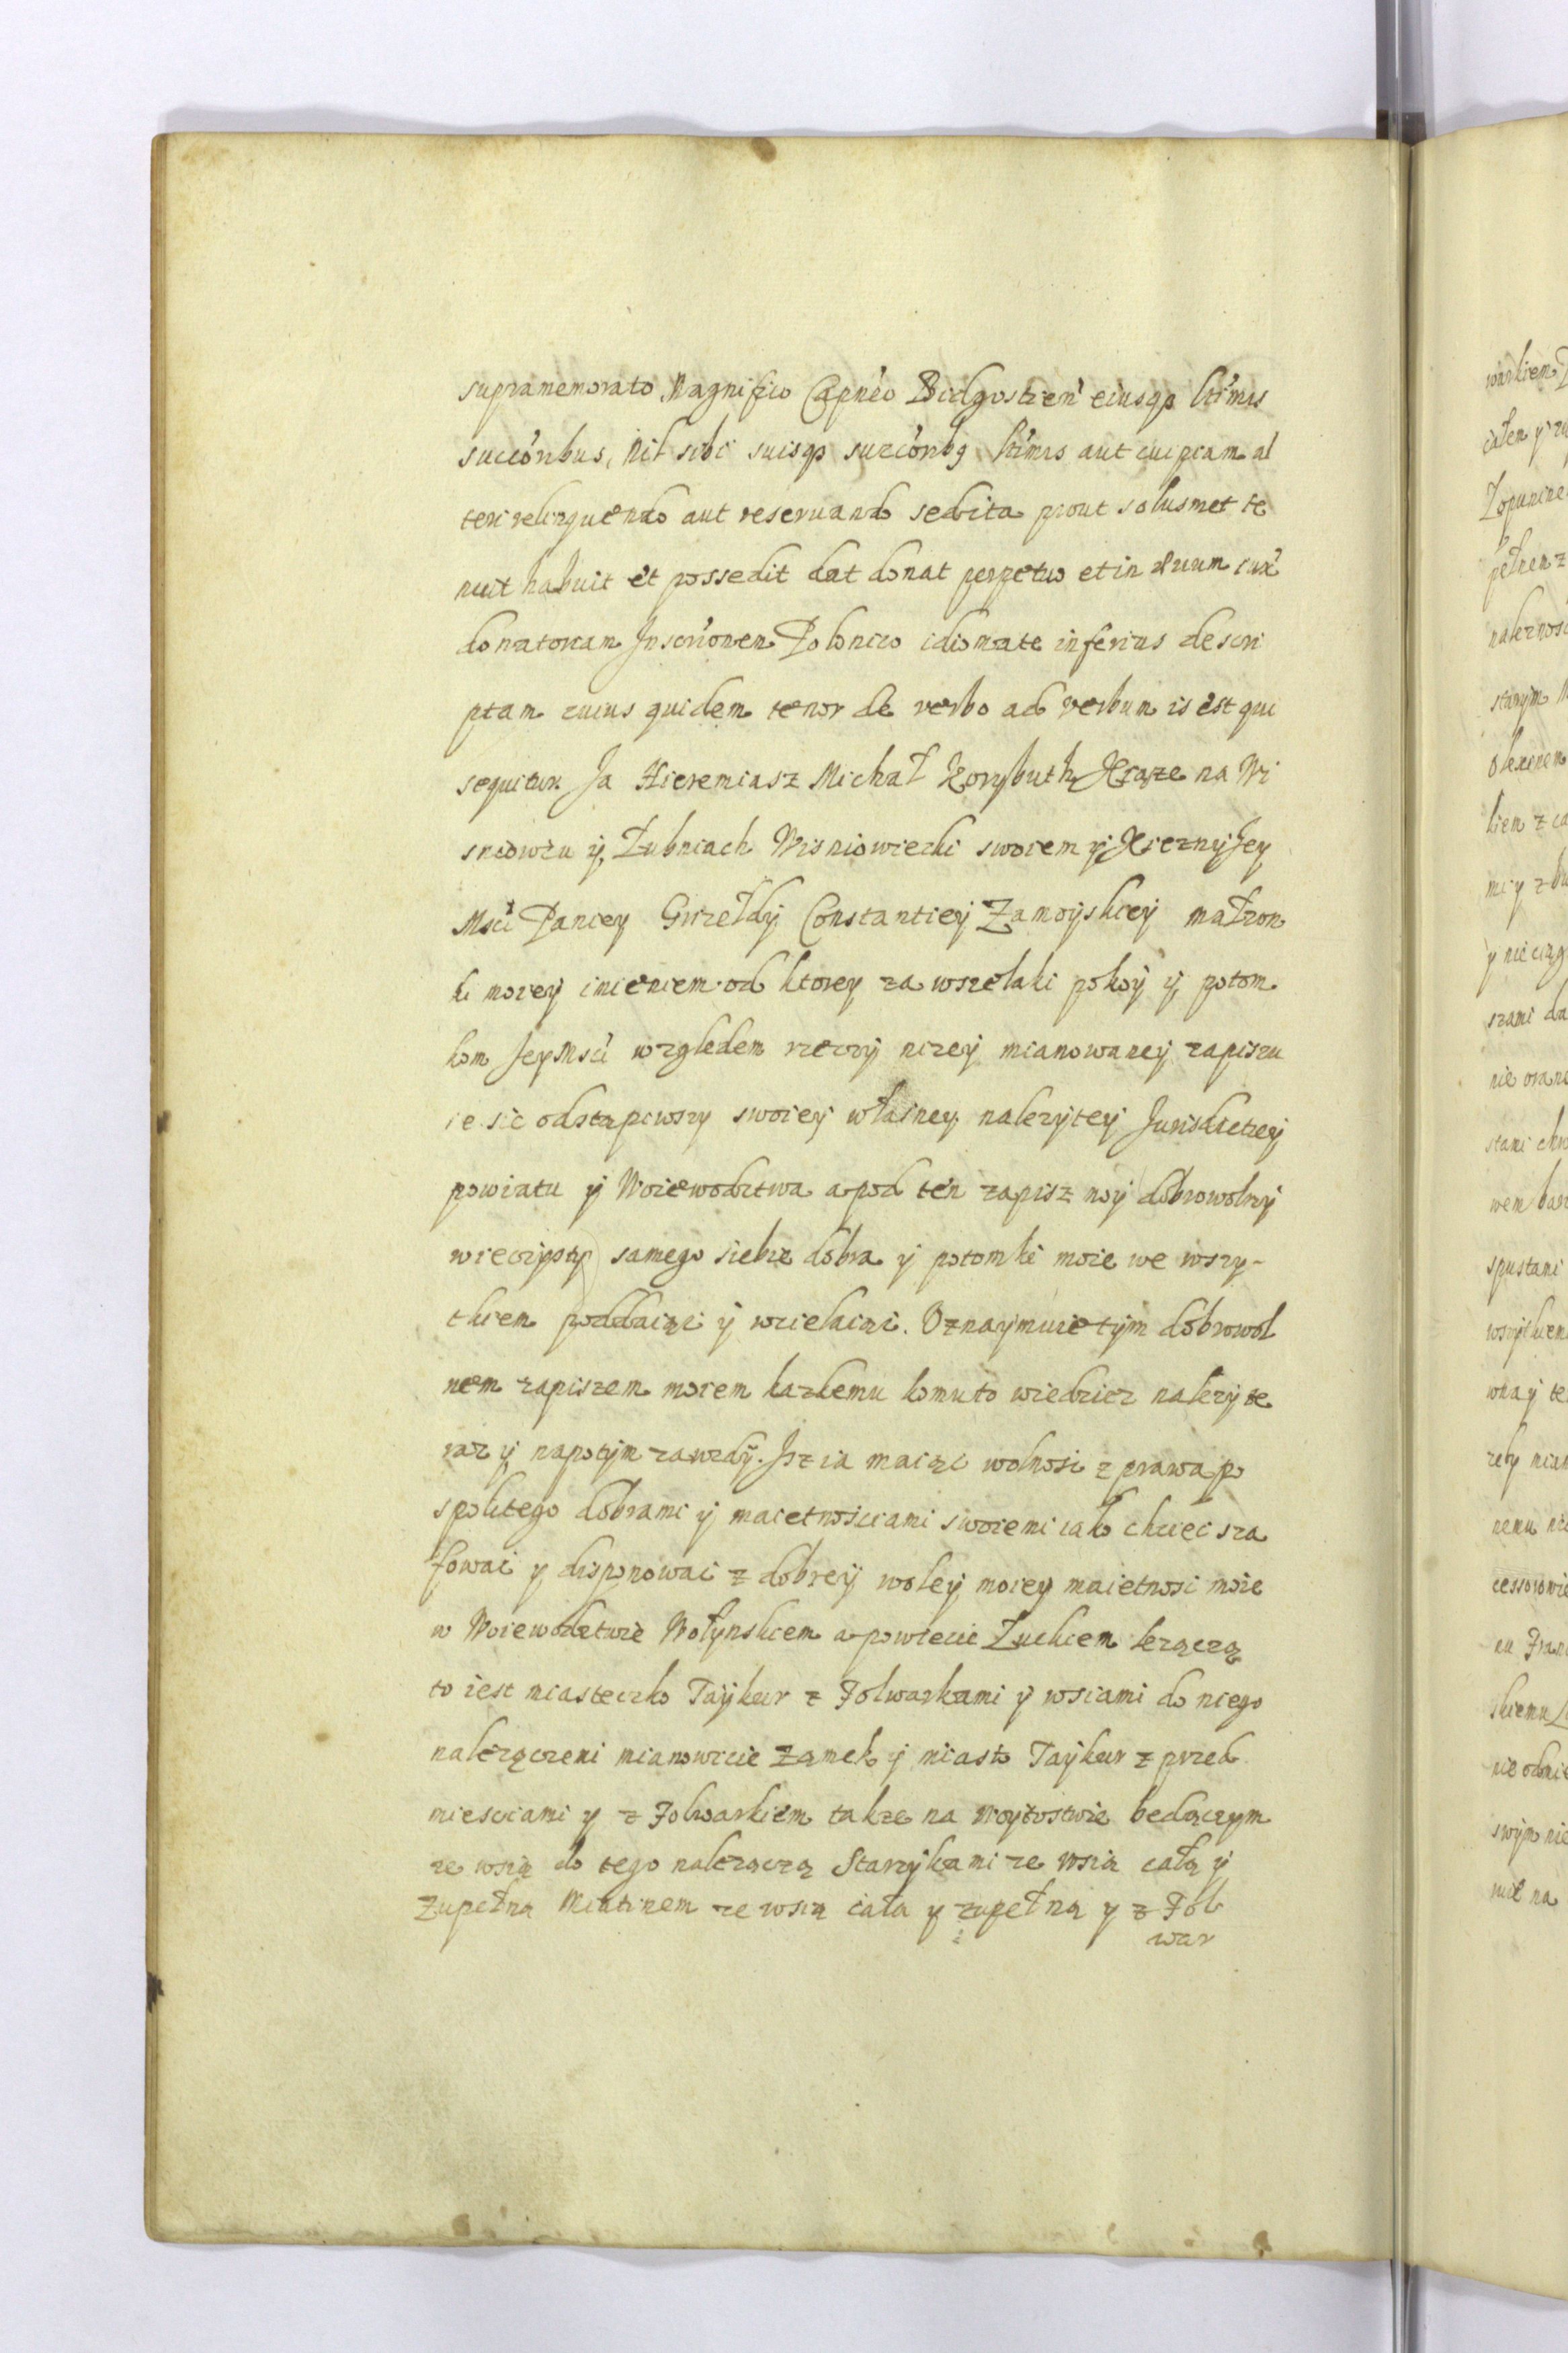 supramemorato Magnifico Capn̄eo Bidgostien̄ eiusqȝ lttimis
succōribus, Nil sibi suisqȝ succōribȝ lttimis aut cuipiam al
teri relinquendo aut reseruando sed ita prout solusmet te
nuit habuit et possedit dat donat perpetuo et in æuum iux̄
donatoriam Inscrīonem Polonico idiomate inferius descri
ptam cuius quidem tenor de verbo ad verbum is est qui
sequitur. Ja Hieremiasz Michał Korybuth Xcąze na Wi
sniowcu y Łubniach Wisniowiecki swoiem y Xiezny Jey
Msći Paniey Grizełdy Constantiey Zamoyskiey małzon
ki moiey imieniem od ktorey za wszelaki pokoy y potom
kom Jey Msći względem rzeczy nizey mianowaney zapiszu
ie sie odstąpiwszy swoiey własney nalezytey Jurisdictiey
powiatu y Woiewodztwa a pod ten zapisz moy dobrowolny
wieczysty samego siebie dobra y potomki moie we wszy-
tkiem poddaiąc y wcielaiąc. Oznaymuie tym dobrowol
nem zapiszem moiem kazdemu komu to wiedziec nalezy te
raz y napotym zawzdy. Jsz ia maiąc wolnosc z prawa po
spolitego dobrami y maietnosciami swoiemi iako chciec sza
fowac y disponowac z dobrey woley moiey maietnosc moie
w Woiewodztwie Wołynskiem a powiecie Łuckiem lezączą
to iest miasteczko Taykur z Folwarkami y wsiami do niego
nalezączemi mianowicie Zamek y miasto Taykur z przed
miesciami y z Folwarkiem takze na Woytostwie bedączym
ze wsią do tego nalezączą Starzykami ze wsią całą y
Zupełną Miatinem ze wsią całą y zupełną y z Fol
war